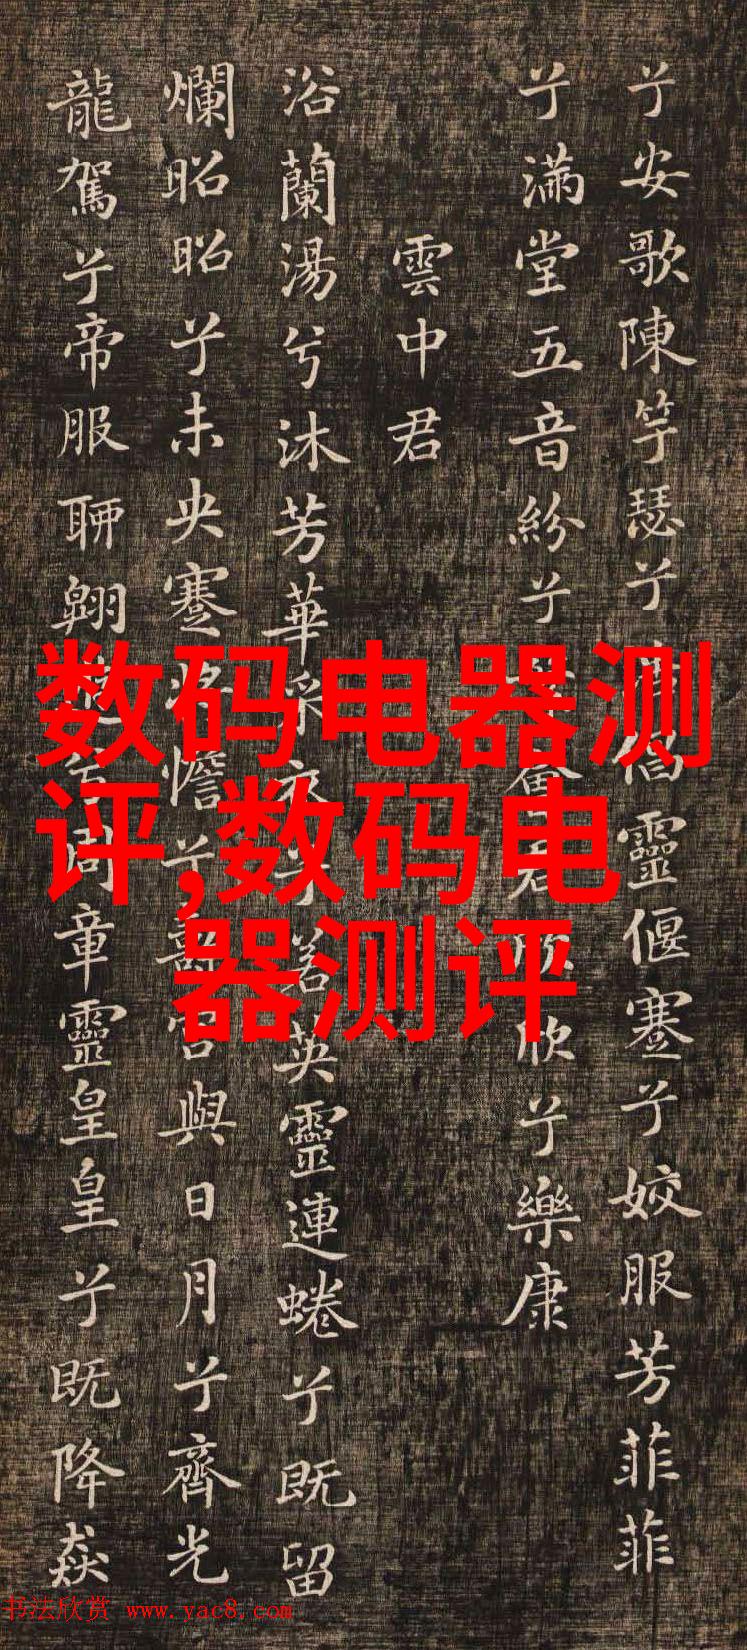 兮安歌陳竽瑟兮倡靈偃蹇兮姣服芳菲菲
兮滿堂五音紛兮欣兮樂康
雲中君
浴蘭湯兮沐芳華衣兮若英靈連蜷兮既留
爛昭昭兮未央蹇憺兮壽宮與日月兮齊光
龍駕兮帝服聊翱兮周章靈皇皇兮既降猋
数码电器测
评,数码电
器测评
书法欣赏 www.yac8.com